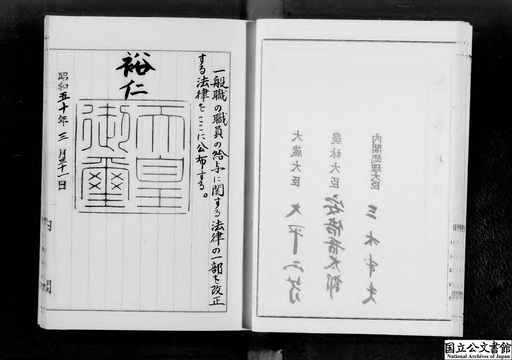 内閣総理大臣 三木武夫
農林大臣 安倍晋太郎
大蔵大臣 大平正芳
一般職の職員の給与に関する法律の一部を改正
する法律をここに公布する。
裕仁
天皇
御璽
昭和五十年三月三十一日
内閣
国立公文書館
National Archives of Japan